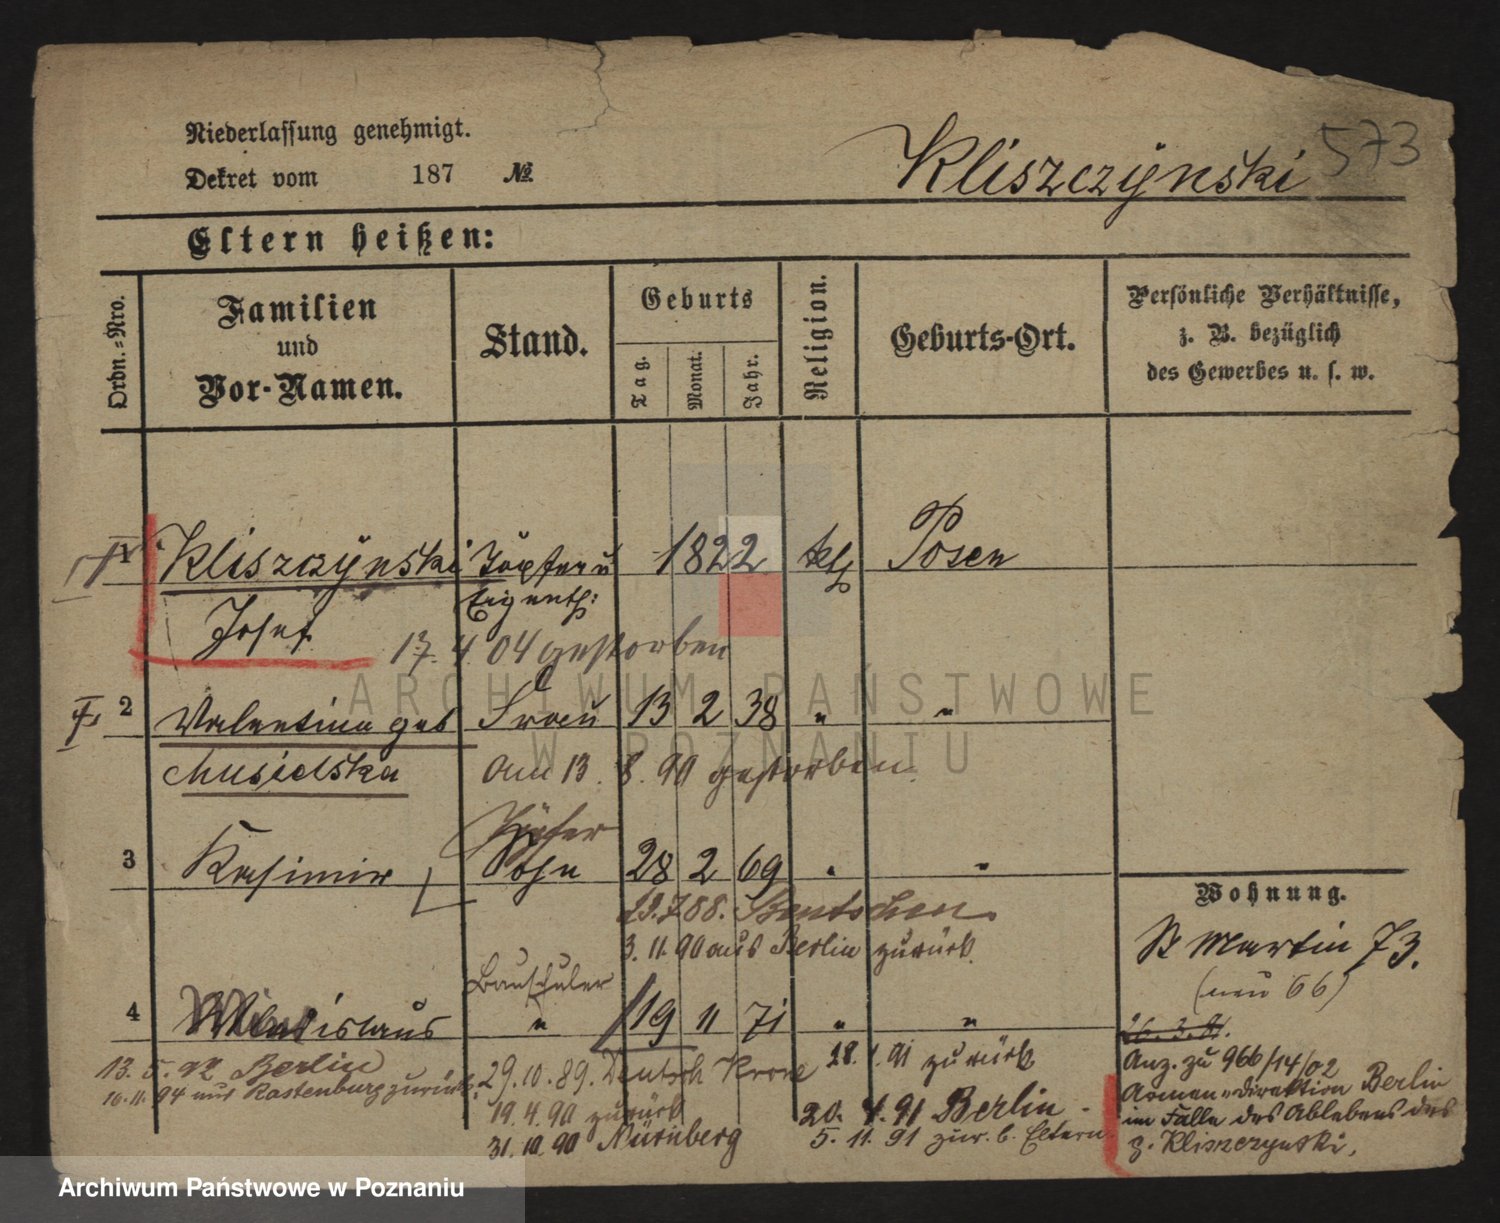 Niederlassung genehmigt.
Dekret vom 187 №
Kliszczÿnski 573
Eltern heißen:
Ordn.-Nro.
Familien
und
Vor-Namen.
Stand.
Geburts
Tag. Monat. Jahr.
Religion.
Geburts-Ort.
Persönliche Verhältnisse,
z. B. bezüglich
des Gewerbes u. s. w.
1 Kliszczÿnski Töpfer u 1822 kth Posen
Eigenth:
Josef
17. 4. 04 gestorben
2 Valentina geb Frau 13 2 38 " "
Musielska am 13. 8. 90 gestorben.
Töpfer
3 Kasimir Sohn 28 2 69 " "
88. Bentschen.
3. 11. 90 aus Berlin zurück.
Wohnung.
St Martin 73.
(neu 66)
Bauschüler
4 Wladislaus " 19 11 71 " "
13. 5. 92 Berlin
16. 11. 94 aus Rastenburg zurück.
29. 10. 89. Deutsch Krone
19. 4. 90 zurück
31. 10. 90 Nürnberg
91 zurück
91 Berlin
5. 11. 91 zur. b. Eltern.
Anz. zu 966/14/02
Armen-direktion Berlin
im Falle des Ablebens des
g. Kliszczynski.
ARCHIWUM PAŃSTWOWE
W POZNANIU
Archiwum Państwowe w Poznaniu